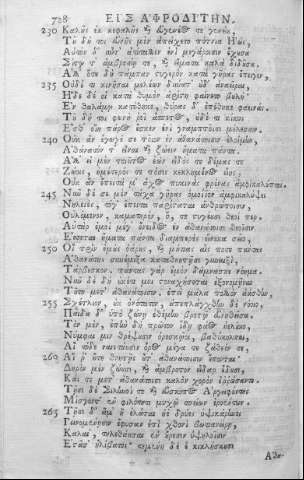 728 ΕΙΣ ΑΦΡΟΔΙΤΗΝ.
230 Καλῆς ἐκ κεφαλῆς καὶ εὐγενέος τε γενείου,
Τοῦ δή τοι εὐνῆς μὲν ἀπείχετο πότνια Ἠώς,
Αὐτὸν δ' αὖτ' ἀτίταλλεν ἐνὶ μεγάροισιν ἔχουσα
Σίτῳ τ' ἀμβροσίῃ τε, καὶ εἵματα καλὰ διδοῦσα.
Ἀλλ' ὅτε δὴ πάμπαν στυγερὸν κατὰ γῆρας ἔπειγεν,
235 Οὐδέ τι κινῆσαι μελέων δύνατ' οὐδ' ἀναεῖραι,
Ἥδε δέ οἱ κατὰ θυμὸν ἀρίστη φαίνετο βουλή·
Ἐν θαλάμῳ κατέθηκε, θύρας δ' ἐπέθηκε φαεινάς.
Τοῦ δή τοι φωνὴ ῥεῖ ἄσπετος, οὐδέ τι κίκυς
Ἔσθ' οἵη πάρος ἔσκεν ἐνὶ γναμπτοῖσι μέλεσσιν.
240 Οὐκ ἂν ἔγωγέ σε τοῖον ἐν ἀθανάτοισιν ἑλοίμην,
Ἀθάνατόν τ' εἶναι καὶ ζώειν ἤματα πάντα.
Ἀλλ' εἰ μὲν τοιοῦτος ἐὼν εἶδός τε δέμας τε
Ζώοις, ἡμέτερός τε πόσις κεκλημένος εἴης·
Οὐκ ἂν ἔπειτά μ' ἄχος πυκινὰς φρένας ἀμφικαλύπτοι.
245 Νῦν δέ σε μὲν τάχα γῆρας ὁμοίϊον ἀμφικαλύψει
Νηλειές, τό γ' ἔπειτα παρίσταται ἀνθρώποισιν,
Οὐλόμενον, καματηρόν, ὅ, τε στυγέουσι θεοί περ.
Αὐτὰρ ἐμοὶ μέγ' ὄνειδος ἐν ἀθανάτοισι θεοῖσιν
Ἔσσεται ἤματα πάντα διαμπερὲς εἵνεκα σεῖο,
250 Οἳ πρὶν ἐμοὺς ὀάρους, καὶ μήτιας, αἷς ποτε πάντας
Ἀθανάτους συνέμιξα καταθνητῇσι γυναιξί,
Τάρβεσκον. πάντας γὰρ ἐμὸν δάμνασκε νόημα.
Νῦν δὲ δὴ οὐκέτι μοι στοναχήσεται ἐξονομῆναι
Τοῦτο μετ' ἀθανάτοισιν, ἐπεὶ μάλα πολλὸν ἀάσθην,
255 Σχέτλιον, οὐκ ὀνότατον, ἀπεπλάγχθην δὲ νόοιο,
Παῖδα δ' ὑπὸ ζώνῃ ἐθέμην βροτῷ εὐνηθεῖσα.
Τὸν μὲν, ἐπὴν δὴ πρῶτον ἴδῃ φάος ἠελίοιο,
Νύμφαι μιν θρέψουσιν ὀρεσκῷοι, βαθύκολποι,
Αἳ τόδε ναιετάουσιν ὄρος μέγα τε ζάθεόν τε,
260 Αἵ ῥ' οὔτε θνητοῖς οὔτ' ἀθανάτοισιν ἕπονται·
Δηρὸν μὲν ζώουσι, καὶ ἄμβροτον εἶδαρ ἔδουσι,
Καί τε μετ' ἀθανάτοισι καλὸν χορὸν ἐρρώσαντο.
Τῇσι δὲ Σειληνοὶ τε καὶ εὔσκοπος Ἀργειφόντης
Μίσγοντ' ἐν φιλότητι μυχῷ σπείων ἐροέντων.
265 Τῇσι δ' ἅμ' ἢ ἐλάται ἠὲ δρύες ὑψικάρηνοι
Γεινομένῃσιν ἔφυσαν ἐπὶ χθονὶ βωτιανείρῃ,
Καλαί, τηλεθάουσαι ἐν οὔρεσιν ὑψηλοῖσιν
Ἑστᾶσ' ἠλίβατοι· τεμένη δέ ἑ κικλήσκουσι